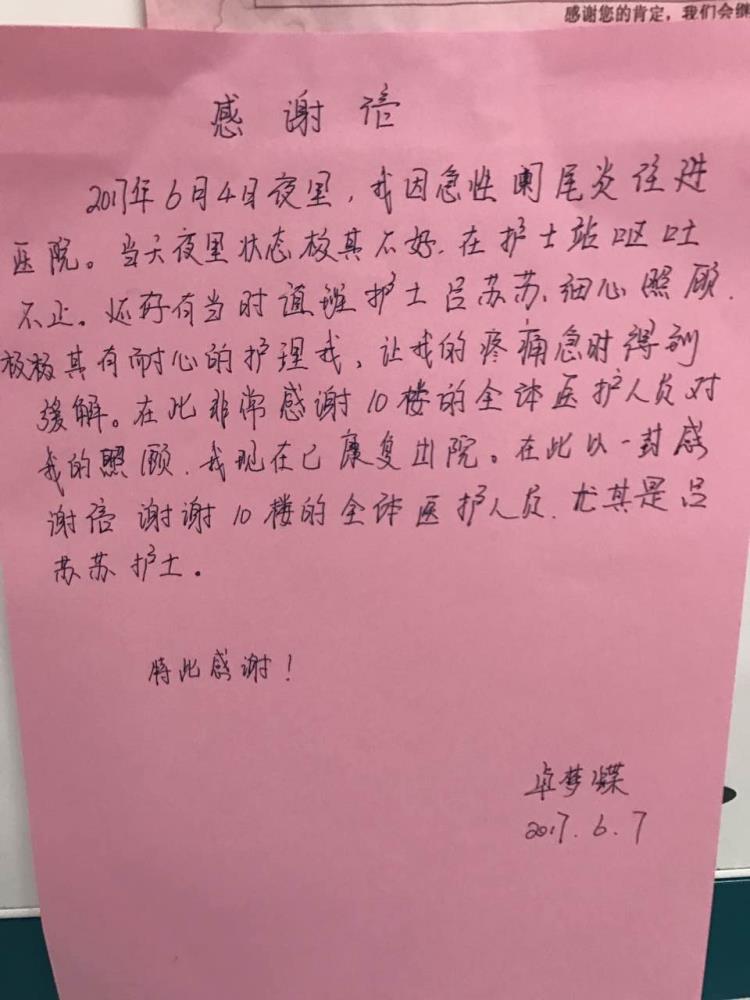 感谢您的肯定，我们会继
感谢信
2017年6月4日夜里，我因急性阑尾炎住进
医院。当天夜里状态极其不好，在护士站呕吐
不止。还好有当时值班护士吕苏苏，细心照顾，
极极其有耐心的护理我，让我的疼痛急时得到
缓解。在此非常感谢10楼的全体医护人员对
我的照顾，我现在已康复出院。在此以一封感
谢信谢谢10楼的全体医护人员，尤其是吕
苏苏护士。
特此感谢！
卓梦蝶
2017.6.7